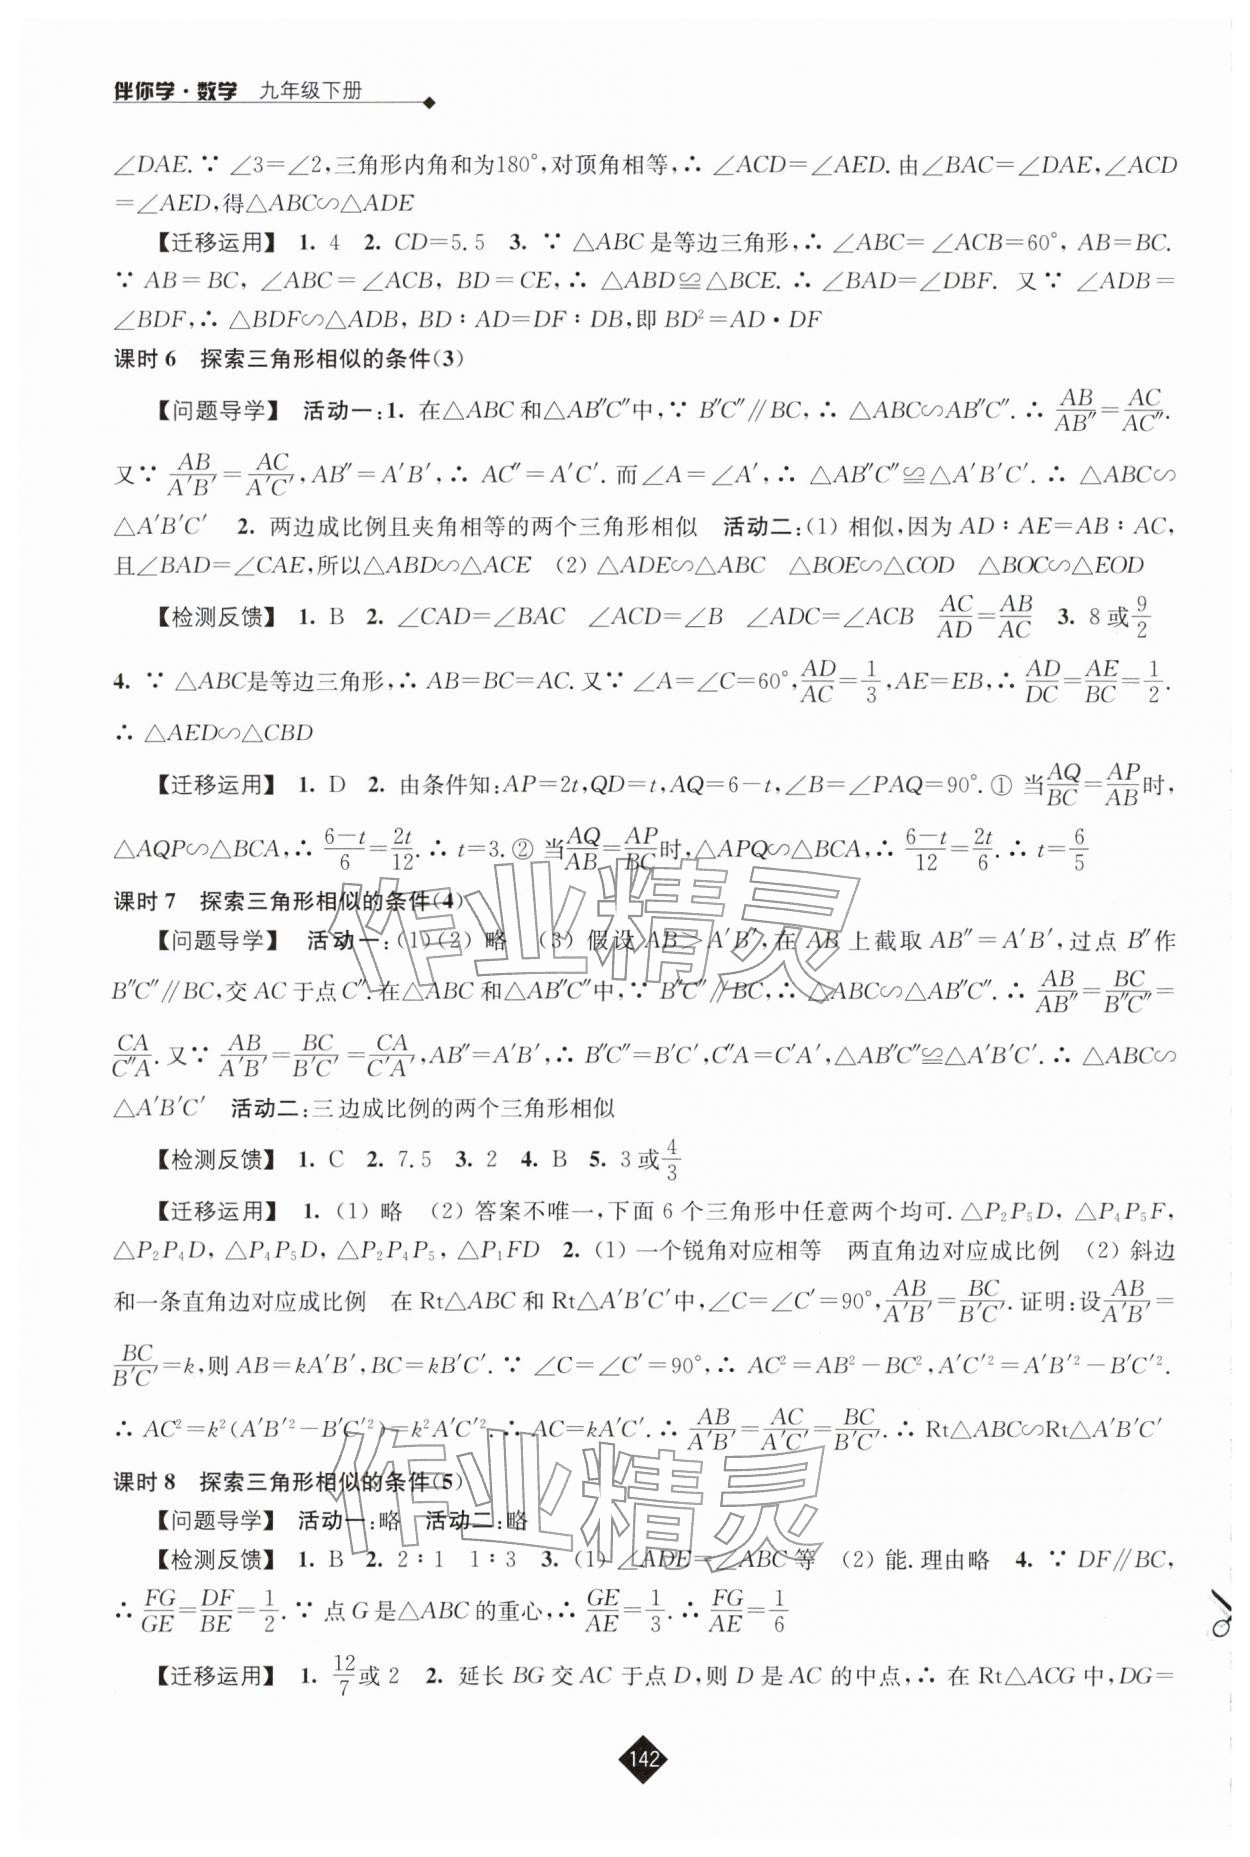 伴你学·数学 九年级下册
∠DAE.∵ ∠3=∠2,三角形内角和为180°,对顶角相等,∴ ∠ACD=∠AED.由∠BAC=∠DAE,∠ACD
=∠AED,得△ABC∽△ADE
【迁移运用】 1. 4 2. CD=5.5 3. ∵ △ABC是等边三角形,∴ ∠ABC=∠ACB=60°, AB=BC.
∵ AB=BC, ∠ABC=∠ACB, BD=CE,∴ △ABD≌△BCE. ∴ ∠BAD=∠DBF. 又∵ ∠ADB=
∠BDF,∴ △BDF∽△ADB, BD∶AD=DF∶DB,即BD²=AD·DF
课时6 探索三角形相似的条件(3)
【问题导学】 活动一:1. 在△ABC和△AB″C″中,∵ B″C″∥BC, ∴ △ABC∽AB″C″. ∴ AB/AB″=AC/AC″.
又∵ AB/A′B′=AC/A′C′,AB″=A′B′,∴ AC″=A′C′.而∠A=∠A′,∴ △AB″C″≌△A′B′C′. ∴ △ABC∽
△A′B′C′ 2. 两边成比例且夹角相等的两个三角形相似 活动二:(1) 相似,因为AD∶AE=AB∶AC,
且∠BAD=∠CAE,所以△ABD∽△ACE (2) △ADE∽△ABC △BOE∽△COD △BOC∽△EOD
【检测反馈】 1. B 2. ∠CAD=∠BAC ∠ACD=∠B ∠ADC=∠ACB AC/AD=AB/AC 3. 8或9/2
4. ∵ △ABC是等边三角形,∴ AB=BC=AC.又∵ ∠A=∠C=60°,AD/AC=1/3,AE=EB,∴ AD/DC=AE/BC=1/2.
∴ △AED∽△CBD
【迁移运用】 1. D 2. 由条件知:AP=2t,QD=t,AQ=6-t,∠B=∠PAQ=90°.① 当AQ/BC=AP/AB时,
△AQP∽△BCA,∴ (6-t)/6=2t/12.∴ t=3.② 当AQ/AB=AP/BC时,△APQ∽△BCA,∴ (6-t)/12=2t/6.∴ t=6/5
课时7 探索三角形相似的条件(4)
【问题导学】 活动一:(1)(2) 略 (3) 假设AB>A′B′,在AB上截取AB″=A′B′,过点B″作
B″C″∥BC,交AC于点C″.在△ABC和△AB″C″中,∵ B″C″∥BC,∴ △ABC∽△AB″C″.∴ AB/AB″=BC/B″C″=
CA/C″A.又∵ AB/A′B′=BC/B′C′=CA/C′A′,AB″=A′B′,∴ B″C″=B′C′,C″A=C′A′,△AB″C″≌△A′B′C′.∴ △ABC∽
△A′B′C′ 活动二:三边成比例的两个三角形相似
【检测反馈】 1. C 2. 7.5 3. 2 4. B 5. 3或4/3
【迁移运用】 1. (1) 略 (2) 答案不唯一,下面6个三角形中任意两个均可.△P₂P₅D, △P₄P₅F,
△P₂P₄D, △P₄P₅D, △P₂P₄P₅, △P₁FD 2. (1) 一个锐角对应相等 两直角边对应成比例 (2) 斜边
和一条直角边对应成比例 在Rt△ABC和Rt△A′B′C′中,∠C=∠C′=90°,AB/A′B′=BC/B′C′.证明:设AB/A′B′=
BC/B′C′=k,则AB=kA′B′,BC=kB′C′.∵ ∠C=∠C′=90°,∴ AC²=AB²-BC²,A′C′²=A′B′²-B′C′².
∴ AC²=k²(A′B′²-B′C′²)=k²A′C′².∴ AC=kA′C′.∴ AB/A′B′=AC/A′C′=BC/B′C′.∴ Rt△ABC∽Rt△A′B′C′
课时8 探索三角形相似的条件(5)
【问题导学】 活动一:略 活动二:略
【检测反馈】 1. B 2. 2∶1 1∶3 3. (1) ∠ADE=∠ABC等 (2) 能.理由略 4. ∵ DF∥BC,
∴ FG/GE=DF/BE=1/2.∵ 点G是△ABC的重心,∴ GE/AE=1/3.∴ FG/AE=1/6
【迁移运用】 1. 12/7或2 2. 延长BG交AC于点D,则D是AC的中点,∴ 在Rt△ACG中,DG=
142
作业精灵
作业精灵